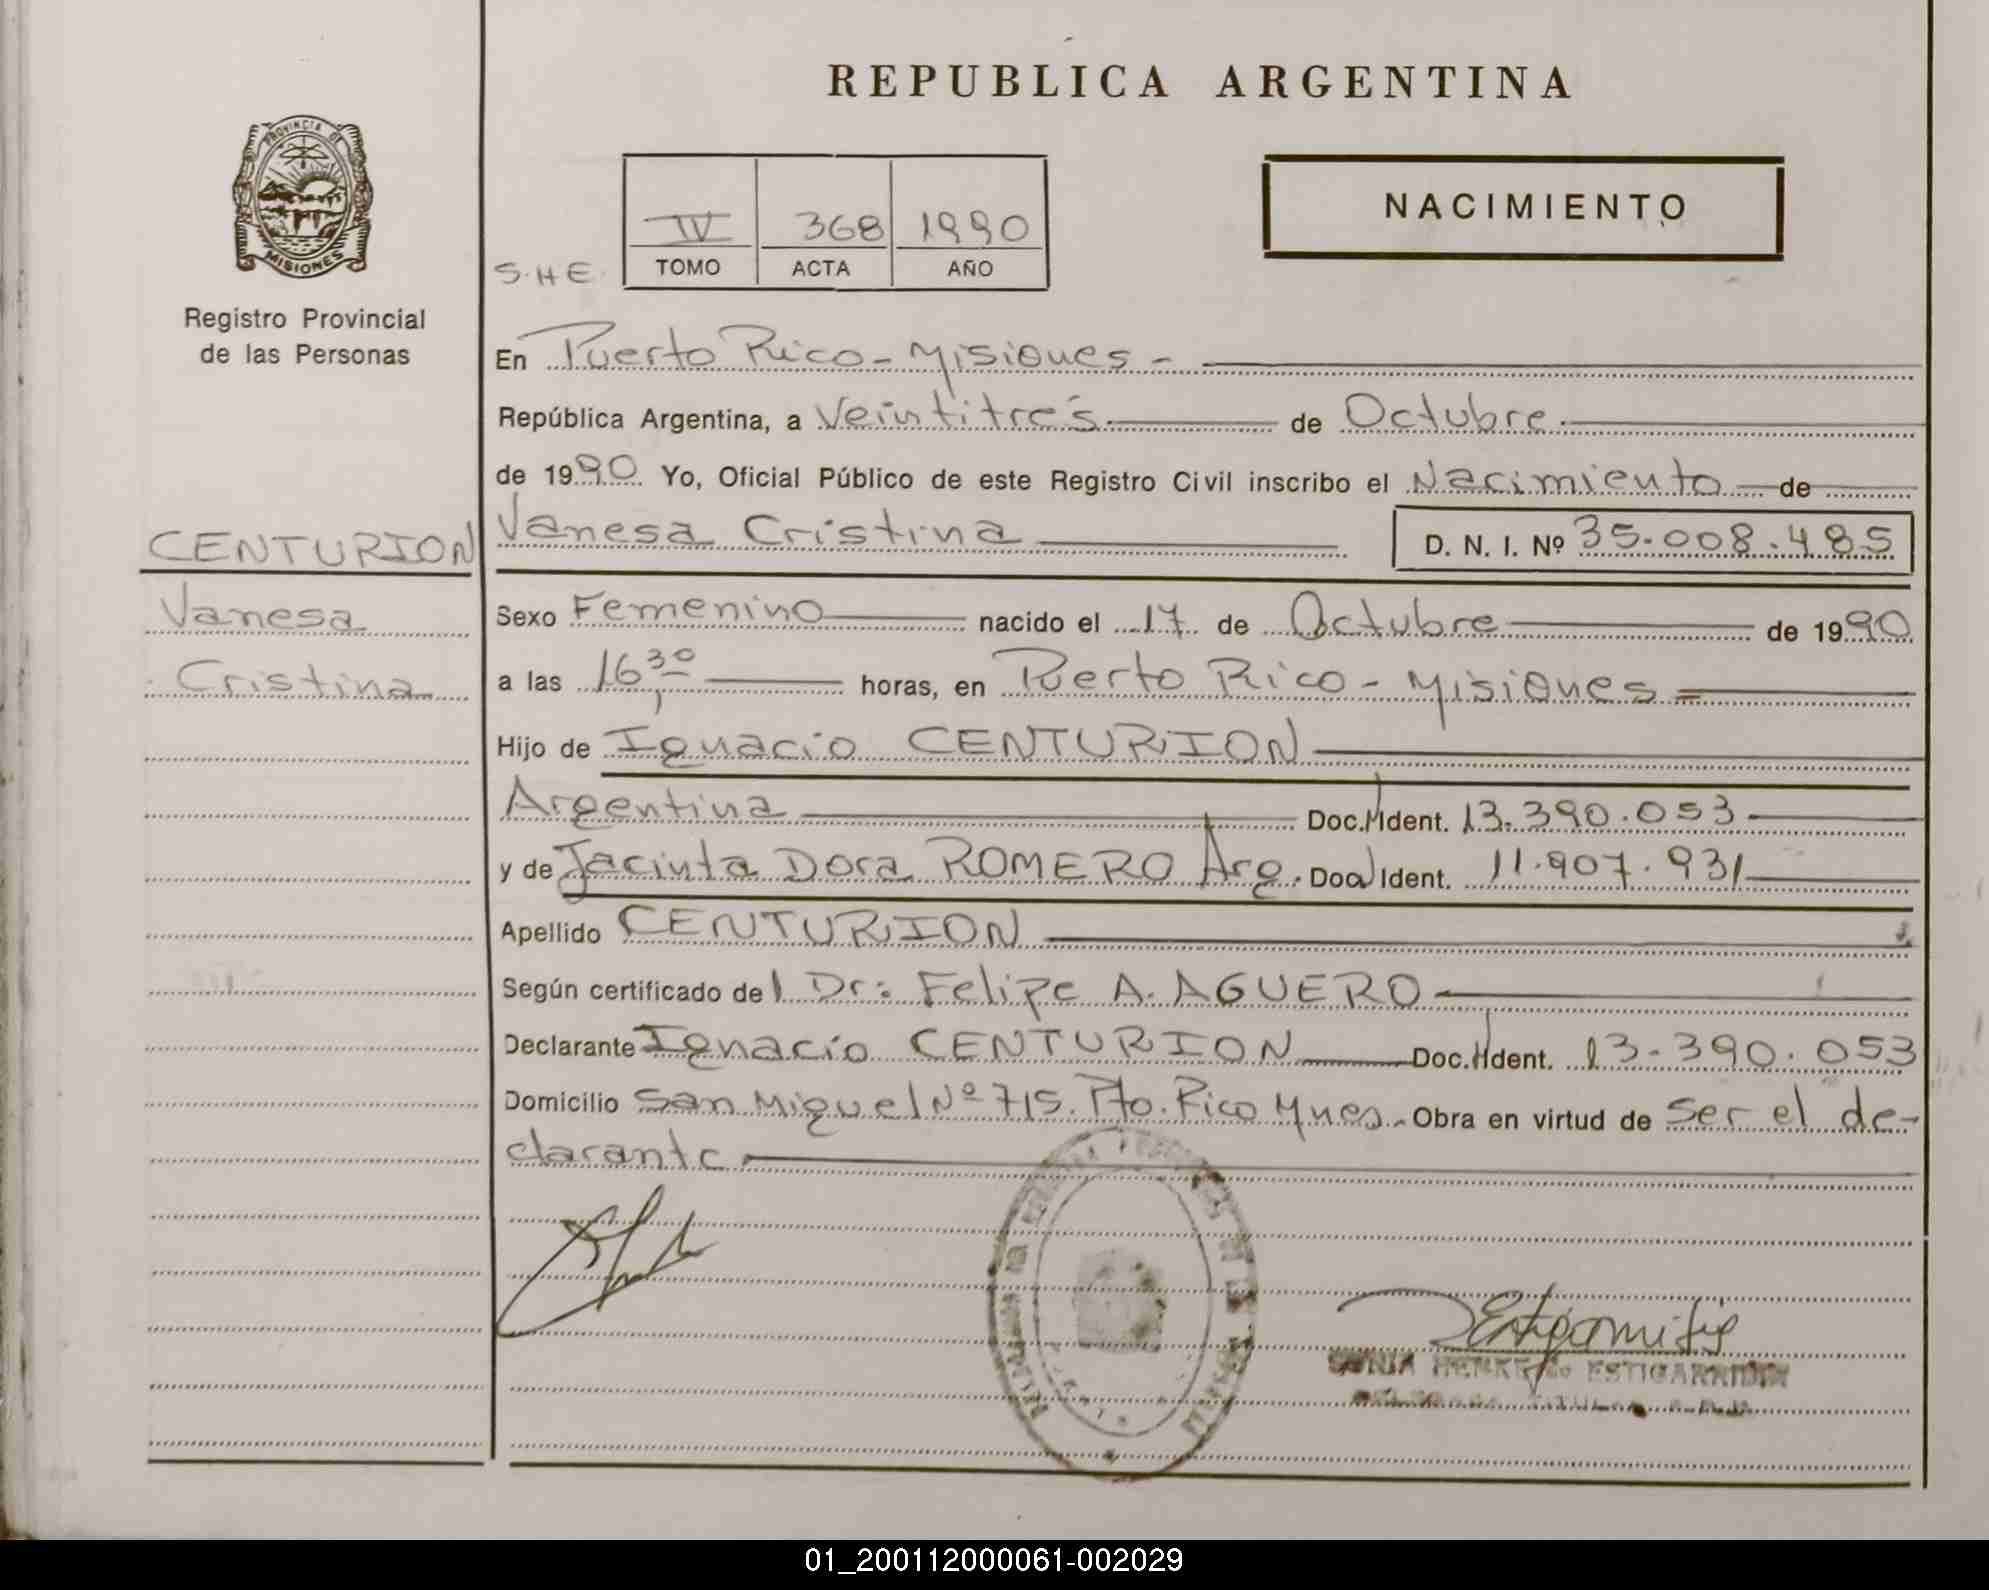 REPUBLICA ARGENTINA
PROVINCIA DE
MISIONES
Registro Provincial
de las Personas
NACIMIENTO
IV 368 1990
S.H.E. TOMO ACTA AÑO
En Puerto Rico - Misiones -
República Argentina, a Veintitrés de Octubre
de 1990 Yo, Oficial Público de este Registro Civil inscribo el Nacimiento de
CENTURION
Vanesa
Cristina
Vanesa Cristina D. N. I. Nº 35.008.485
Sexo Femenino nacido el 17 de Octubre de 1990
a las 16,30 horas, en Puerto Rico - Misiones =
Hijo de Ignacio CENTURION
Argentina Doc. Ident. 13.390.053
y de Jacinta Dora ROMERO Arg. Doc. Ident. 11.907.931
Apellido CENTURION
Según certificado del Dr: Felipe A. AGUERO
Declarante Ignacio CENTURION Doc. Ident. 13.390.053
Domicilio San Miguel Nº 715. Pto. Rico Mnes. Obra en virtud de ser el de-
clarante
SONIA HENKE de ESTIGARRIBIA
01_200112000061-002029